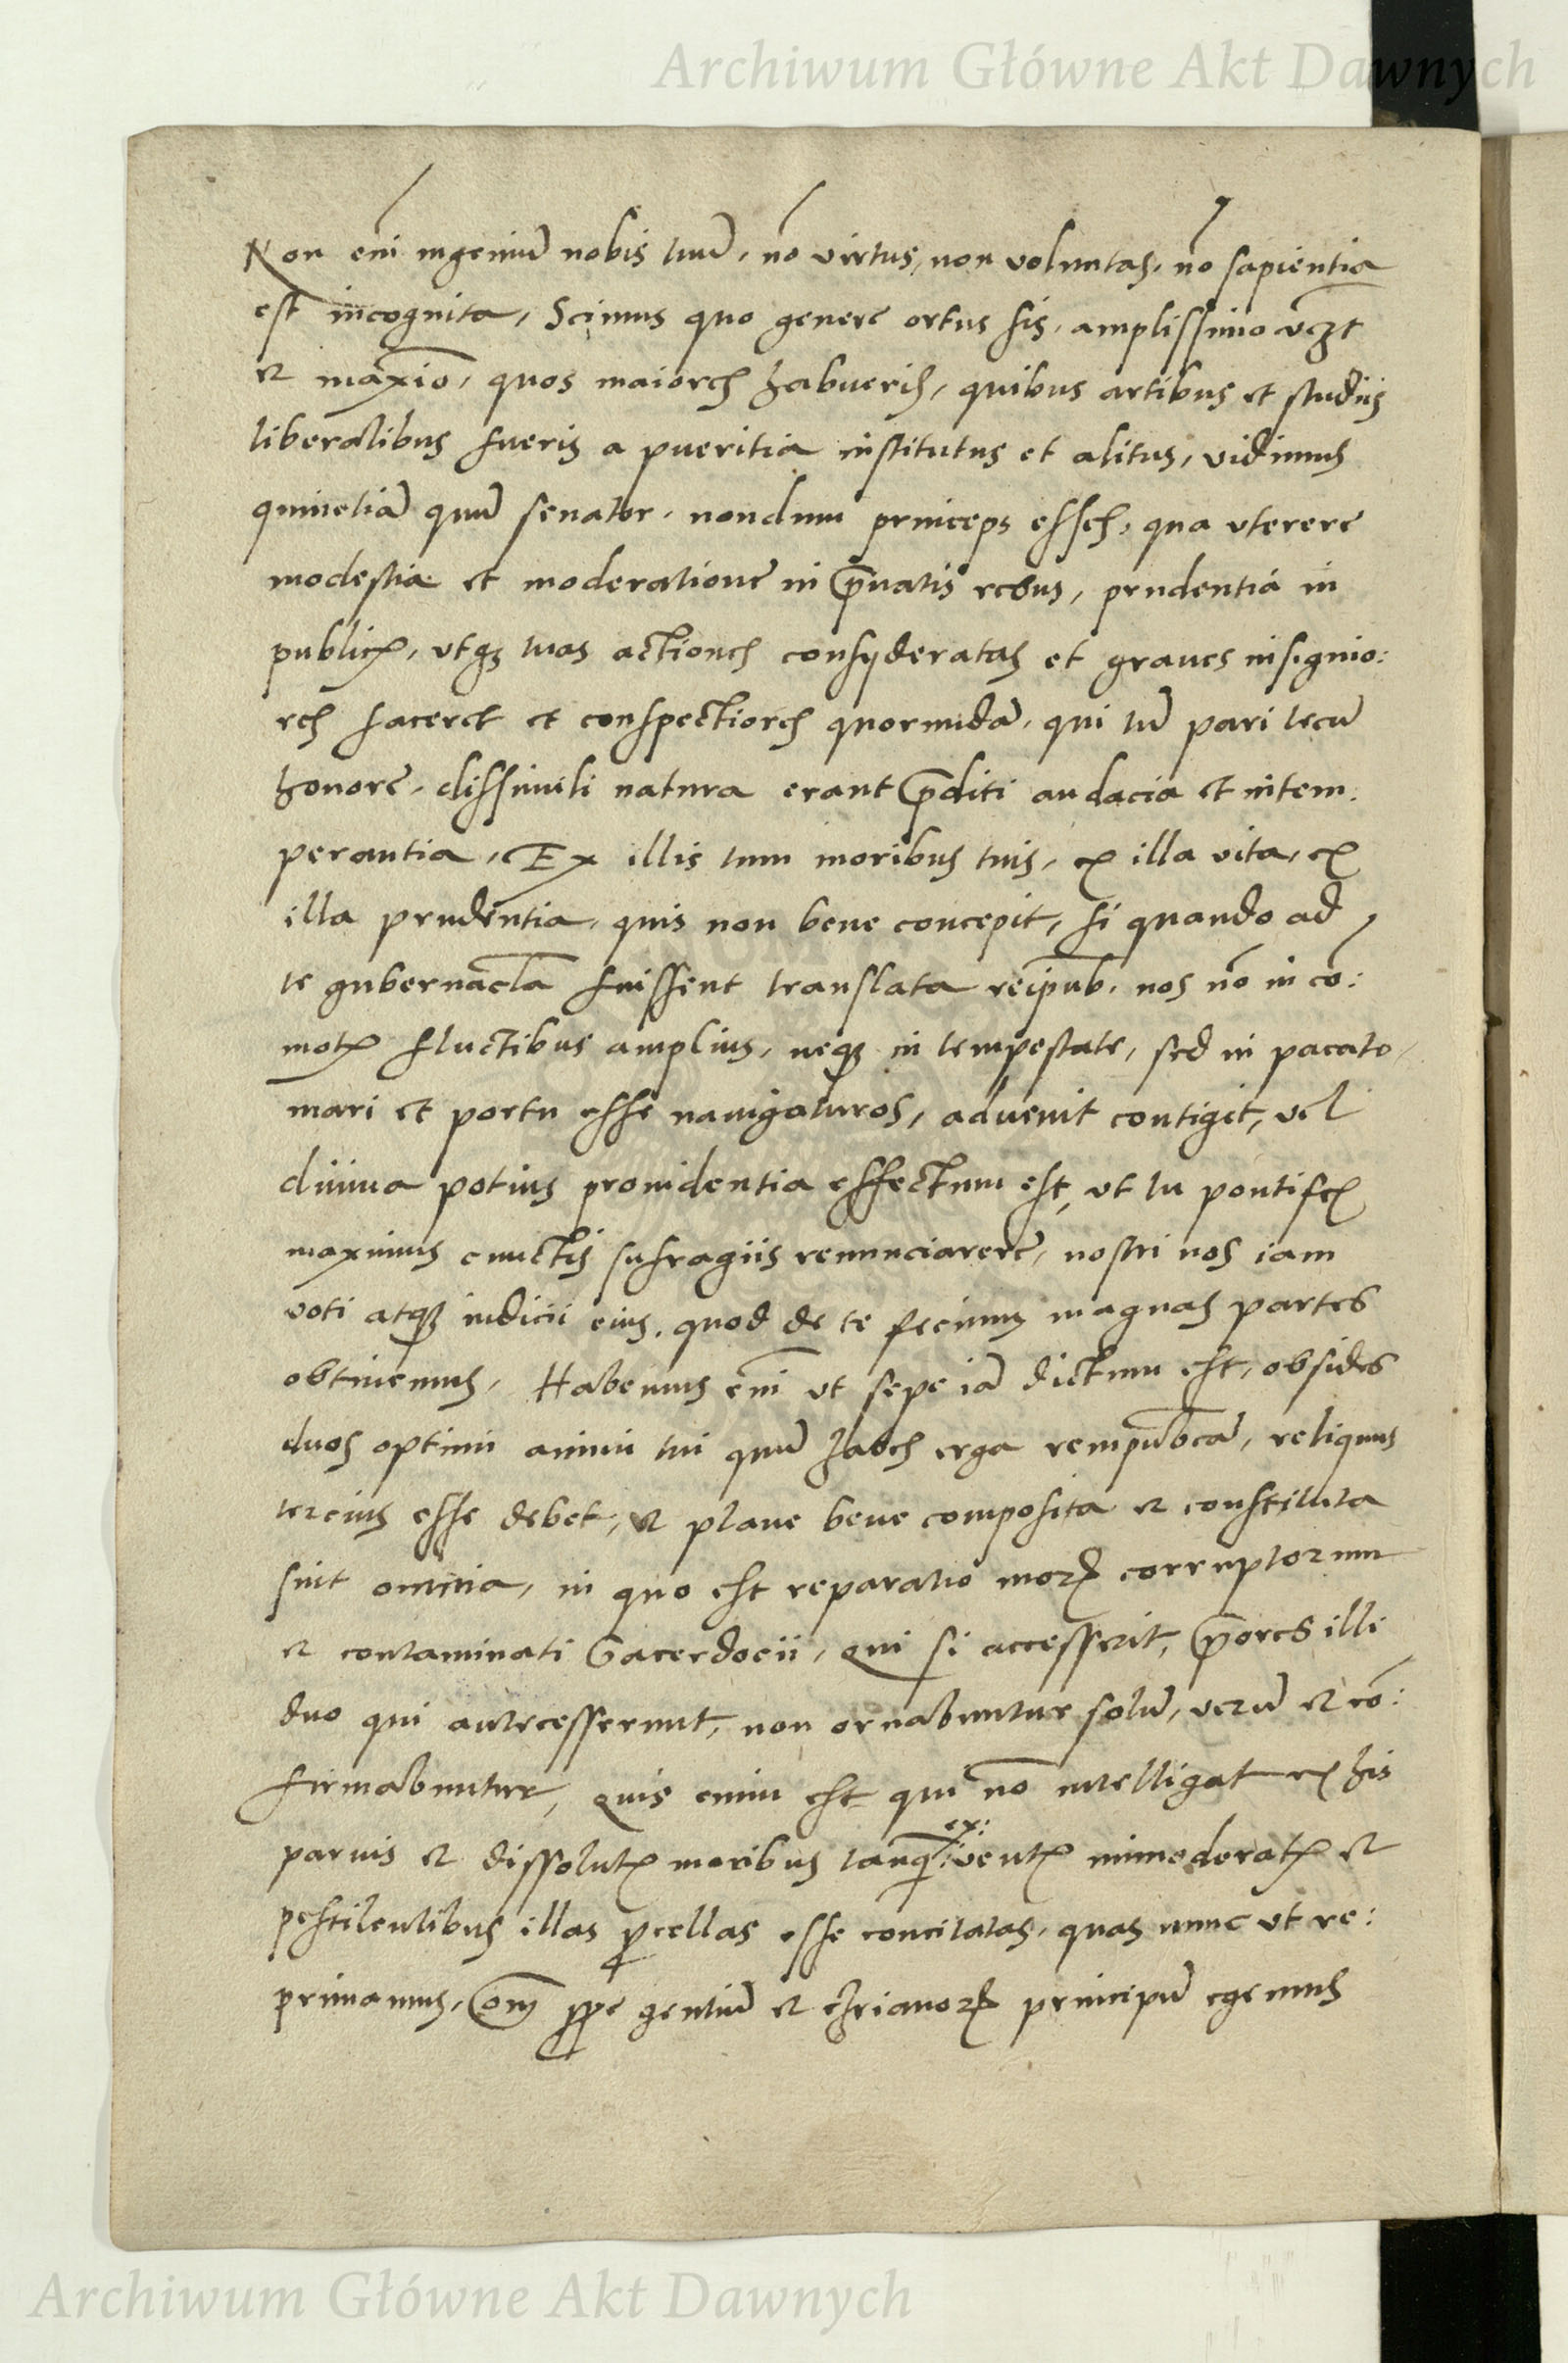 Archiwum Główne Akt Dawnych
Non em̄ ingeniū nobis tuū, nō virtus, non voluntas, nō sapientia
est incognita, Scimus quo genere ortus sis, amplissimo vcꝫt
et maxīo, quos maiores habueris, quibus artibus et studiis
liberalibus fueris a pueritia institutus et alitus, vidimus
quinetiā quū senator, nondum princeps esses, qua uterere
modestia et moderatione in p̄uatis rebus, prudentia in
publicꝭ, utqꝫ tuas actiones consyderatas et graues insignio:
res faceret et conspectiores quorundā, qui tū pari tecū
honore, dissimili natura erant p̄diti audacia et intem:
perantia, Ex illis tum moribus tuis, ex illa vita, ex
illa prudentia, quis non bene concepit, si quando ad
te gubernacl̄a fuissent translata reip̄ub. nos nō in cō:
motꝭ fluctibus amplius, neqꝫ in tempestate, sed in pacato
mari et portu esse nauigaturos, aduenit contigit, vel
diuina potius prouidentia effectum est, ut tu pontifex
maximus cunctis sufragiis renunciarere, nostri nos iam
voti atqꝫ iudicii eius, quod de te fecimus magnas partes
obtinemus, Habemus em̄ ut sepe iā dictum est, obsides
duos optimi animi tui quū habes erga rempub̄cā, reliquus
tercius esse debet, ut plane bene composita et constituta
sint omnia, in quo est reparatio morꝝ corruptorum
et contaminati Sacerdocii, qui si accesserit, p̄ores illi
duo qui antecesserunt, non ornabuntur solū, verū et cō:
firmabuntur, quis enim est qui nō intelligat ex his
ex:
paruis et dissolutꝭ moribus tanq̄ ventꝭ immoderatꝭ et
pestilentibus illas ꝓcellas esse concitatas, quas nunc ut re:
primamus, om̄ ꝓpe gentiū et chrianorꝝ principū egemus
Archiwum Główne Akt Dawnych